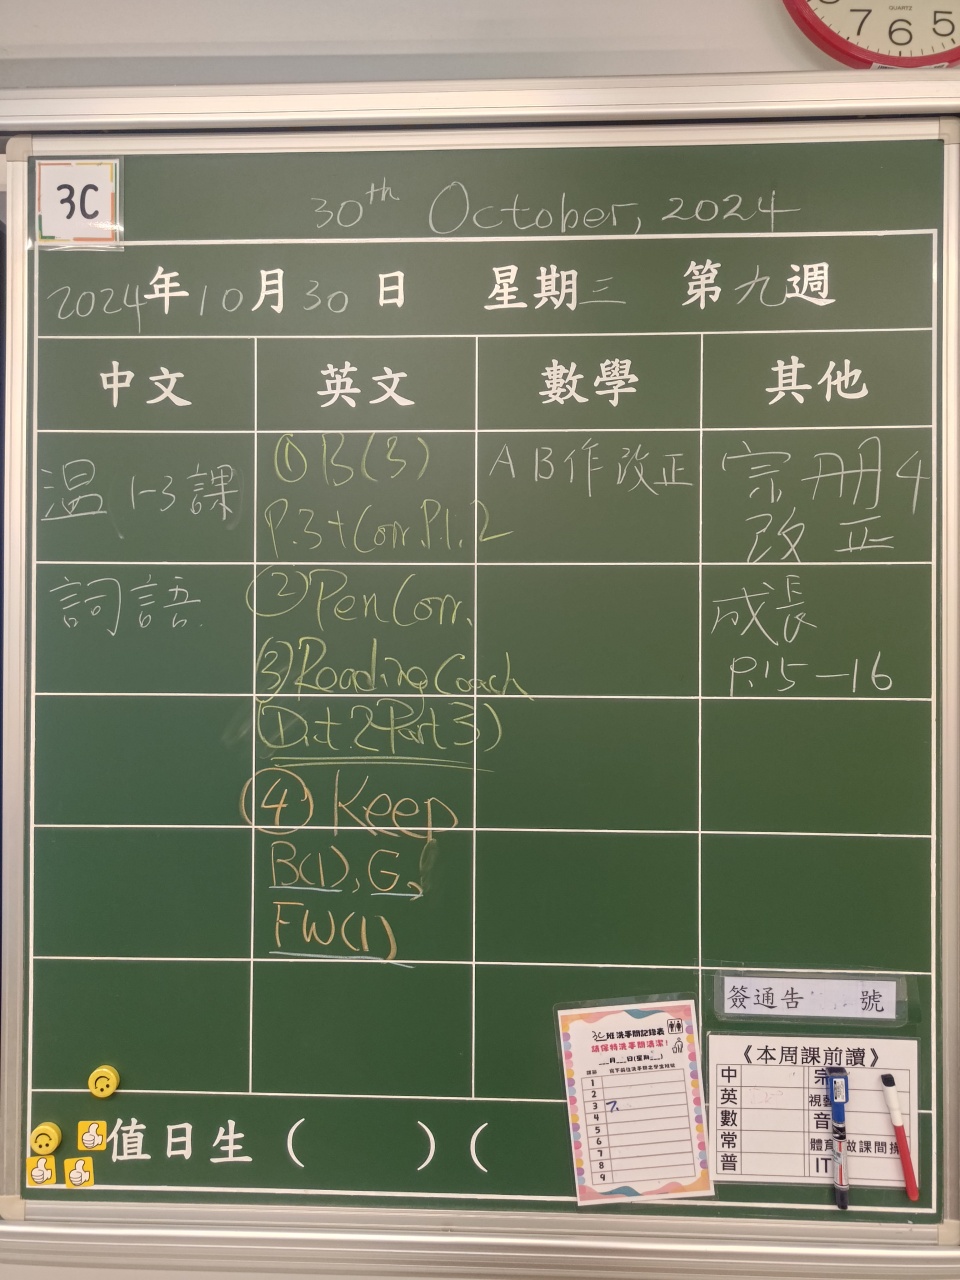 QUARTZ
7 6 5
3C
30th October, 2024
2024年10月30日 星期三 第九週
中文 英文 數學 其他
温1-3課
詞語
①B(3)
P.3+Corr.P.1.2
②Pen Corr.
③Reading Coach
(Dict.2 Part 3)
④Keep
B(1), G.
FW(1)
AB作改正
宗冊4
改正
成長
P.15-16
簽通告 號
3C班洗手間記錄表
請保持洗手間清潔!
__月__日(星期__)
1
2
3 7.
4
5
6
7
8
9
《本周課前讀》
中 宗
英 視藝
數 音
常 體育 做課間操
普 IT
值日生 ( ) (